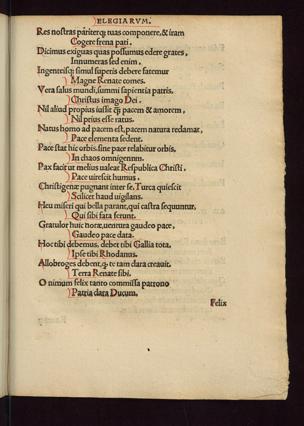 ELEGIARVM.
Res nostras pariterq; tuas componere, & iram
Cogere frena pati.
Dicimus exiguas quas possumus edere grates,
Innumeras sed enim.
Ingentesq; simul superis debere fatemur
Magne Renate comes.
Vera salus mundi, summi sapientia patris.
Christus imago Dei.
Nil aliud propius iussit q̃ pacem & amorem,
Nil prius esse ratus.
Natus homo ad pacem est, pacem natura redamat,
Pace elementa sedent.
Pace stat hic orbis. sine pace relabitur orbis,
In chaos omnigenum.
Pax facit ut melius valeat Respublica Christi,
Pace virescit humus.
Christigenæ pugnant inter se, Turca quiescit
Scilicet haud vigilans.
Heu miseri qui bella parant, qui castra sequuntur,
Qui sibi fata ferunt.
Gratulor huic horæ, uentura gaudeo pace,
Gaudeo pace data.
Hoc tibi debemus, debet tibi Gallia tota,
Ipse tibi Rhodanus.
Allobroges debent, q̃ te tam clara creauit.
Terra Renate sibi.
O nimum felix tanto commissa patrono
Patria clara Ducum.
Felix